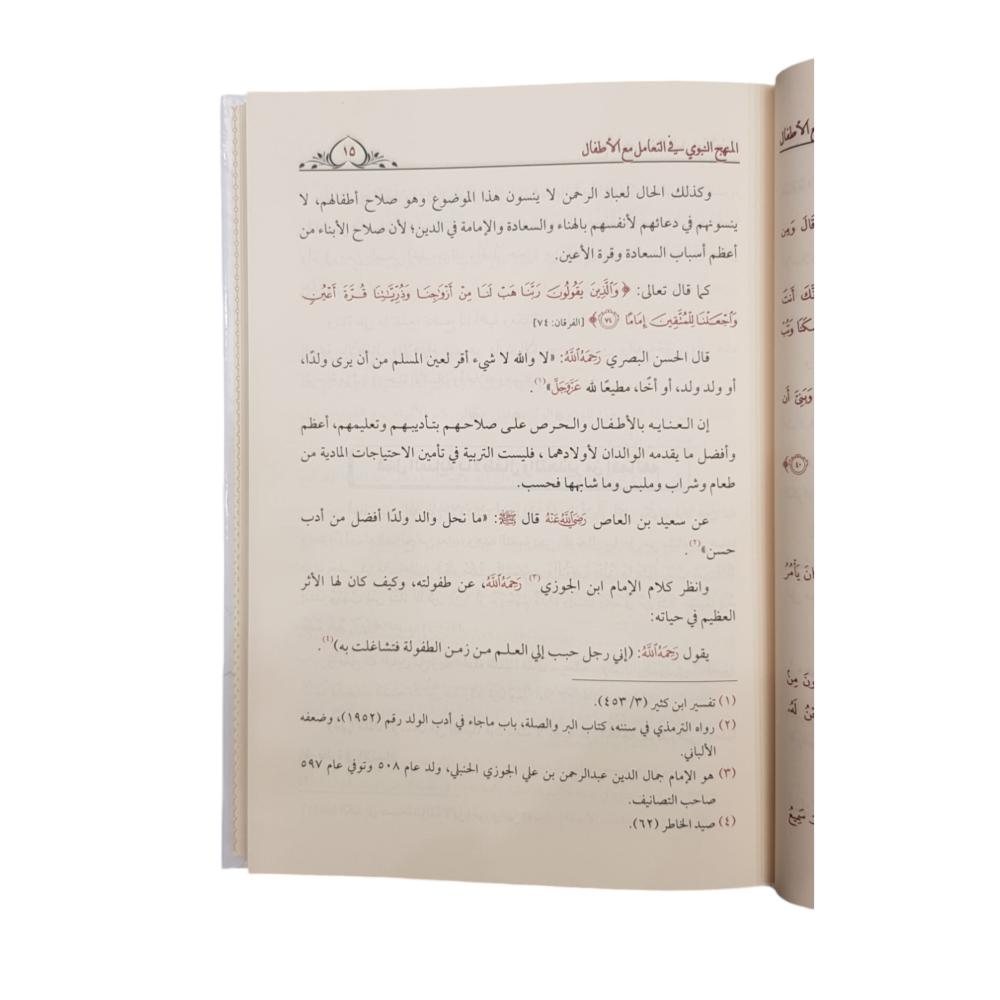 المنهج النبوي في التعامل مع الأطفال
١٥
وكذلك الحال لعباد الرحمن لا ينسون هذا الموضوع وهو صلاح أطفالهم، لا
ينسونهم في دعائهم لأنفسهم بالهناء والسعادة والإمامة في الدين؛ لأن صلاح الأبناء من
أعظم أسباب السعادة وقرة الأعين.
كما قال تعالى: ﴿وَالَّذِينَ يَقُولُونَ رَبَّنَا هَبْ لَنَا مِنْ أَزْوَاجِنَا وَذُرِّيَّاتِنَا قُرَّةَ أَعْيُنٍ
وَاجْعَلْنَا لِلْمُتَّقِينَ إِمَامًا ۝٧٤﴾ [الفرقان: ٧٤]
قال الحسن البصري رَحِمَهُ اللَّهُ: «لا والله لا شيء أقر لعين المسلم من أن يرى ولدًا،
أو ولد ولد، أو أخًا، مطيعًا لله عَزَّوَجَلَّ»(١).
إن العنايه بالأطفال والحرص على صلاحهم بتأديبهم وتعليمهم، أعظم
وأفضل ما يقدمه الوالدان لأولادهما، فليست التربية في تأمين الاحتياجات المادية من
طعام وشراب وملبس وما شابهها فحسب.
عن سعيد بن العاص رَضِيَ اللَّهُ عَنْهُ قال ﷺ: «ما نحل والد ولدًا أفضل من أدب
حسن»(٢).
وانظر كلام الإمام ابن الجوزي(٣) رَحِمَهُ اللَّهُ، عن طفولته، وكيف كان لها الأثر
العظيم في حياته:
يقول رَحِمَهُ اللَّهُ: (إني رجل حبب إلي العلم من زمن الطفولة فتشاغلت به)(٤).
(١) تفسير ابن كثير (٣/ ٤٥٣).
(٢) رواه الترمذي في سننه، كتاب البر والصلة، باب ماجاء في أدب الولد رقم (١٩٥٢)، وضعفه
الألباني.
(٣) هو الإمام جمال الدين عبدالرحمن بن علي الجوزي الحنبلي، ولد عام ٥٠٨ وتوفي عام ٥٩٧
صاحب التصانيف.
(٤) صيد الخاطر (٦٢).